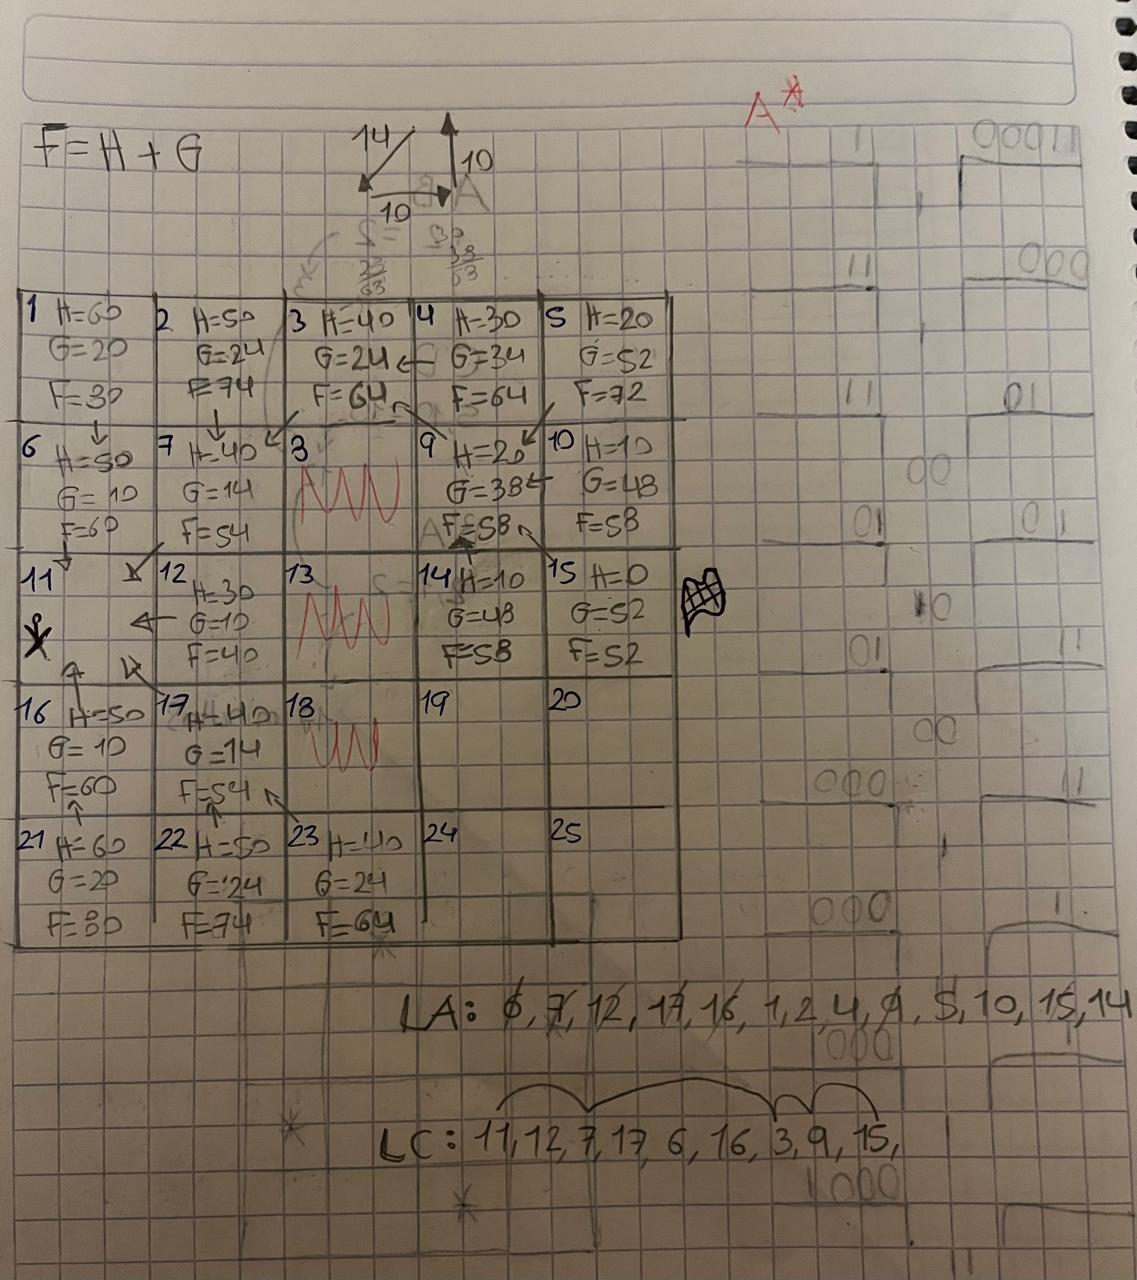 A*
F = H + G
14
10
10
1 H=60
G=20
F=80
2 H=50
G=24
F=74
3 H=40
G=24
F=64
4 H=30
G=34
F=64
5 H=20
G=52
F=72
6 H=50
G=10
F=60
7 H=40
G=14
F=54
8
9 H=20
G=38
F=58
10 H=10
G=48
F=58
11
12 H=30
G=10
F=40
13
14 H=10
G=48
F=58
15 H=0
G=52
F=52
16 H=50
G=10
F=60
17 H=40
G=14
F=54
18
19
20
21 H=60
G=20
F=80
22 H=50
G=24
F=74
23 H=40
G=24
F=64
24
25
LA: 6, 7, 12, 17, 16, 1, 2, 4, 9, 5, 10, 15, 14
LC: 11, 12, 7, 17, 6, 16, 3, 9, 15,